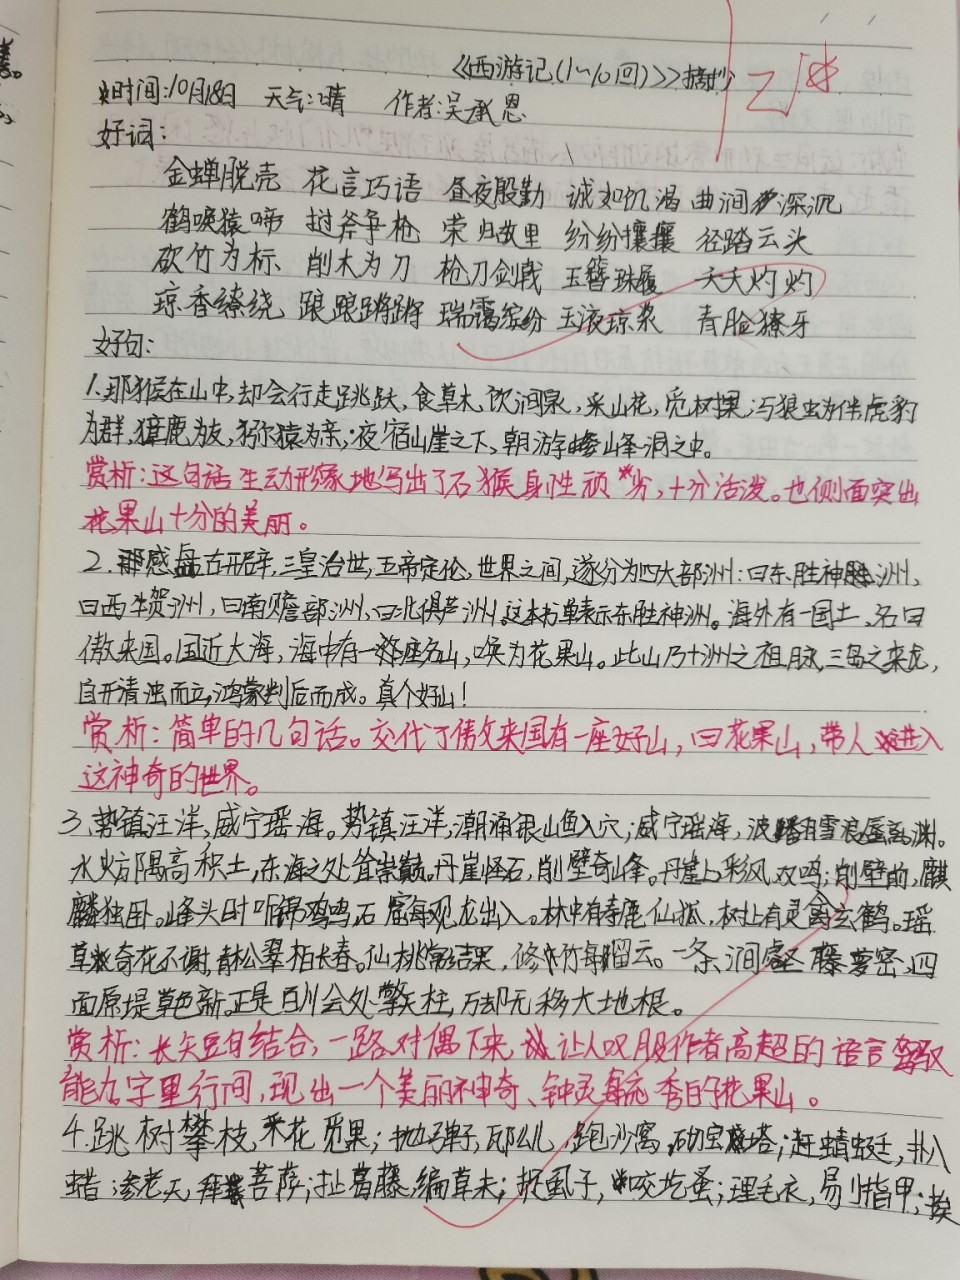 《西游记(1~10回)》摘抄
时间:10月18日 天气:晴 作者:吴承恩
好词:
金蝉脱壳 花言巧语 昼夜殷勤 诚如饥渴 曲涧深沉
鹤唳猿啼 挝斧争枪 荣归故里 纷纷攘攘 径踏云头
砍竹为标 削木为刀 枪刀剑戟 玉簪珠履 夭夭灼灼
琼香缭绕 踉踉蹡蹡 瑞霭缤纷 玉液琼浆 青脸獠牙
好句:
1.那猴在山中,却会行走跳跃,食草木,饮涧泉,采山花,觅树果;与狼虫为伴,虎豹
为群,獐鹿为友,猕猿为亲;夜宿山崖之下,朝游峰洞之中。
赏析:这句话生动形象地写出了石猴身性顽劣,十分活泼。也侧面突出
花果山十分的美丽。
2.那感盘古开辟,三皇治世,五帝定伦,世界之间,遂分为四大部洲:曰东胜神洲,
曰西牛贺洲,曰南赡部洲,曰北俱芦洲。这本书单表示东胜神洲。海外有一国土,名曰
傲来国。国近大海,海中有一座名山,唤为花果山。此山乃十洲之祖脉,三岛之来龙,
自开清浊而立,鸿蒙判后而成。真个好山!
赏析:简单的几句话。交代了傲来国有一座好山,曰花果山,带人进入
这神奇的世界。
3.势镇汪洋,威宁瑶海。势镇汪洋,潮涌银山鱼入穴;威宁瑶海,波翻雪浪蜃离渊。
水火方隅高积土,东海之处耸崇巅。丹崖怪石,削壁奇峰。丹崖上,彩凤双鸣;削壁前,麒
麟独卧。峰头时听锦鸡鸣,石窟每观龙出入。林中有寿鹿仙狐,树上有灵禽玄鹤。瑶
草奇花不谢,青松翠柏长春。仙桃常结果,修竹每留云。一条涧壑藤萝密,四
面原堤草色新。正是百川会处擎天柱,万劫无移大地根。
赏析:长短句结合,一路对偶下来,让人叹服作者高超的语言驾驭
能力,字里行间,现出一个美丽神奇、钟灵毓秀的花果山。
4.跳树攀枝,采花觅果;抛弹子,邷么儿,跑沙窝,砌宝塔;赶蜻蜓,扑八
蜡;参老天,拜菩萨;扯葛藤,编草未;捉虱子,咬圪蚤;理毛衣,剔指甲;挨